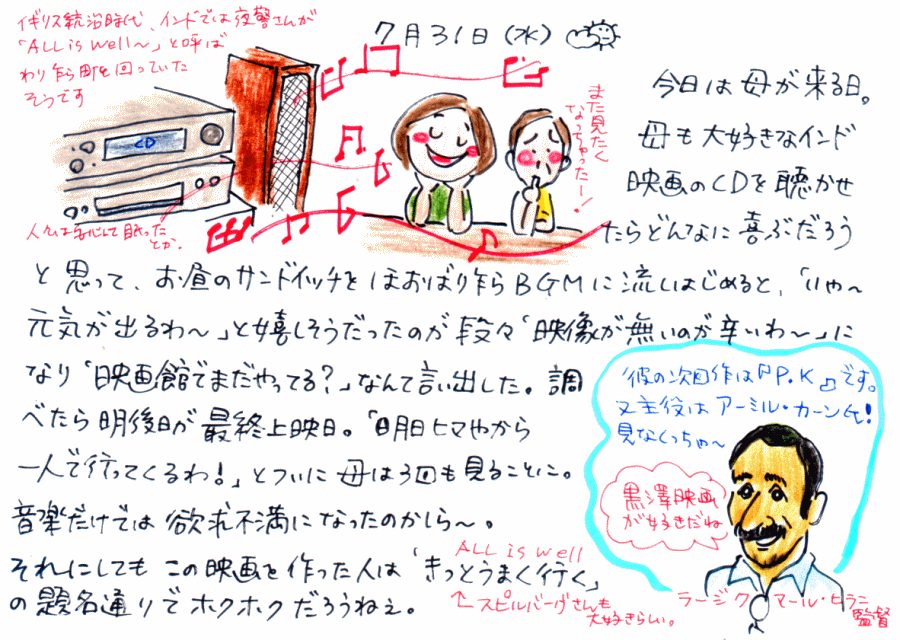 イギリス統治時代、インドでは夜警さんが
「ALL is well〜」と呼ば
わり乍ら町を回っていた
そうです
7月31日(水)
CD
人々は安心して眠った
とか。
また見たく
なっちゃったー!
今日は母が来る日。
母も大好きなインド
映画のCDを聴かせ
たらどんなに喜ぶだろう
と思って、お昼のサンドイッチをほおばり乍らBGMに流しはじめると、「いや〜
元気が出るわ〜」と嬉しそうだったのが段々「映像が無いのが辛いわ〜」に
なり「映画館でまだやってる?」なんて言い出した。調
べたら明後日が最終上映日。「明日ヒマやから
一人で行ってくるわ!」とついに母は3回も見ることに。
音楽だけでは欲求不満になったのかしら〜。
それにしてもこの映画を作った人は「きっとうまく行く」
ALL is well
の題名通りでホクホクだろうねぇ。
↑スピルバーグさんも
大好きらしい。
彼の次回作は『P.K』です。
又主役はアーミル・カーン氏!
見なくっちゃ〜
黒澤映画
が好きだね
ラージクマール・ヒラニ
監督